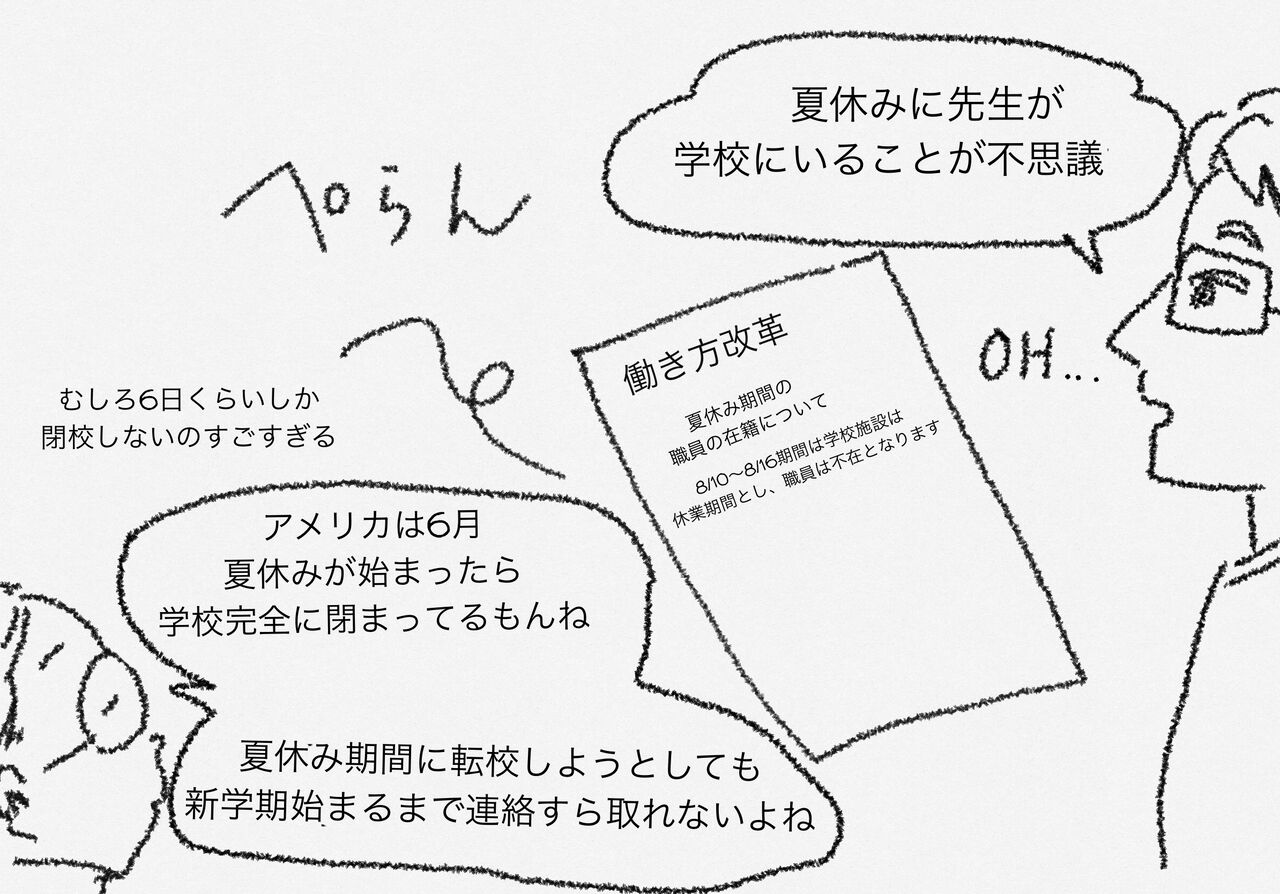 夏休みに先生が
学校にいることが不思議
ぺらん
OH...
働き方改革
夏休み期間の
職員の在籍について
8/10〜8/16期間は学校施設は
休業期間とし、職員は不在となります
むしろ6日くらいしか
閉校しないのすごすぎる
アメリカは6月
夏休みが始まったら
学校完全に閉まってるもんね
夏休み期間に転校しようとしても
新学期始まるまで連絡すら取れないよね